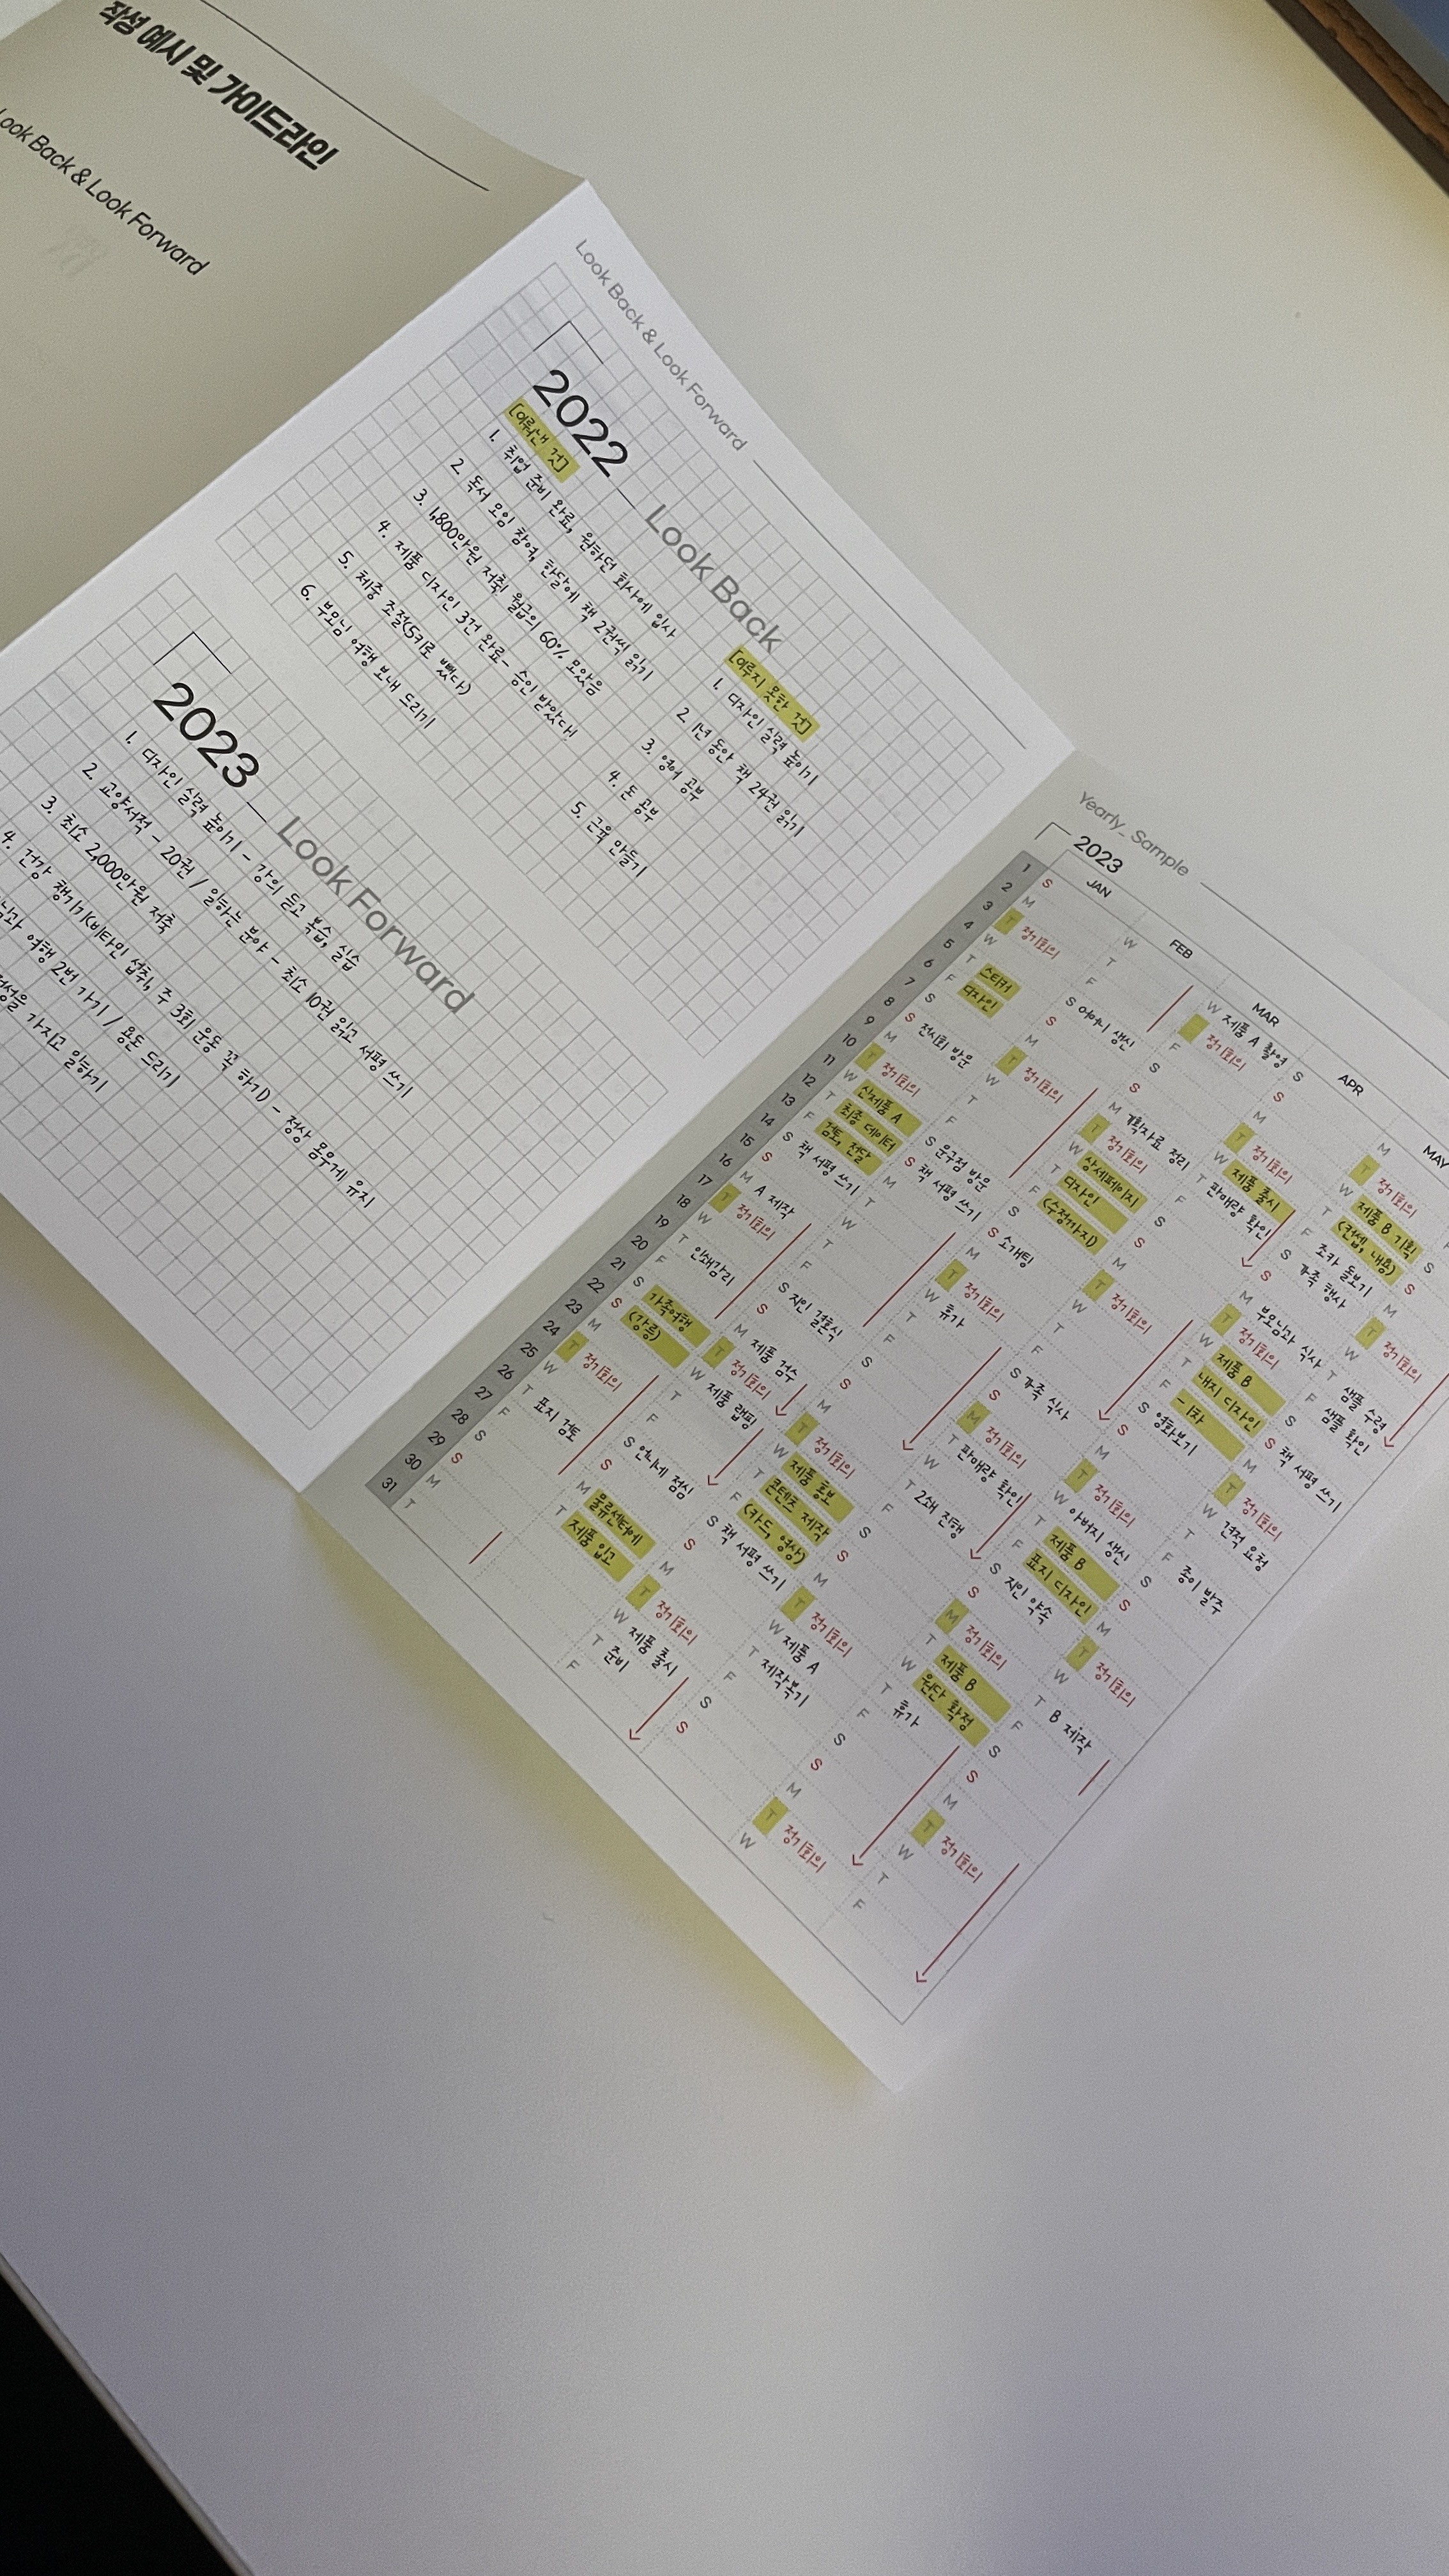 작성 예시 및 가이드라인
Look Back & Look Forward
Look Back & Look Forward
2022 Look Back
[이뤄낸 것]
1. 취업 준비 완료, 원하던 회사에 입사
2. 독서 모임 참여, 한달에 책 2권씩 읽기
3. 1,800만원 저축! 월급의 60% 모았음
4. 제품 디자인 3건 완료- 승인 받았다!
5. 체중 조절(5키로 뺐다)
6. 부모님 여행 보내 드리기
[이루지 못한 것]
1. 디자인 실력 높이기
2. 1년 동안 책 24권 읽기
3. 영어 공부
4. 돈 공부
5. 근육 만들기
2023 Look Forward
1. 디자인 실력 높이기 - 강의 듣고 복습, 실습
2. 교양서적 - 20권 / 일하는 분야 - 최소 10권 읽고 서평 쓰기
3. 최소 2,000만원 저축
4. 건강 챙기기(비타민 섭취, 주 3회 운동 꼭 하기) - 정상 몸무게 유지
여행 2번 가기 / 용돈 드리기
가지고 일하기
Yearly_Sample
2023
JAN
FEB
MAR
APR
MAY
1 S
2 M
3 T 정기회의
4 W
5 T 스티커
6 F 디자인
7 S
8 S 전시회 방문
9 M
10 T 정기회의
11 W 신제품 A
12 T 최종 데이터
13 F 검토, 전달
14 S
15 S 책 서평 쓰기
16 M A 제작
17 T 정기회의
18 W
19 T 인쇄감리
20 F
21 S 가족여행
22 S (강릉)
23 M
24 T 정기회의
25 W
26 T 표지 검토
27 F
28 S
29 S
30 M
31 T
W
T
F
S 어머니 생신
S
M
T 정기회의
W
T
F
S 문구점 방문
S 책 서평 쓰기
M
T
W
T
F
S 지인 결혼식
S
M 제품 검수
T 정기회의
W 제품 랩핑
T
F
S 언니네 점심
S
M 물류센터에
T 제품 입고
W 제품 A 촬영
정기회의
F
S
S
M 기획자료 정리
T 정기회의
W 상세페이지
T 디자인
F (수정까지)
S
S 소개팅
M
T 정기회의
W 휴가
T
F
S
S
M
T 정기회의
W 제품 홍보
T 콘텐츠 제작
F (카드, 영상)
S 책 서평 쓰기
S
M
T 정기회의
W 제품 출시
T 준비
F
S
S
M
T 정기회의
W 제품 출시
T 판매량 확인
F
S
S
M
T 정기회의
W
T
F
S 가족 식사
S
M 정기회의
T 판매량 확인
W
T 2쇄 진행
F
S
S
M
T 정기회의
W 제품 A
T 제작복기
F
S
S
M
T 정기회의
W 제품 B 기획
T (컨셉, 내용)
F 조카 돌보기
S 가족 행사
S
M 부모님과 식사
T 정기회의
W 제품 B
T 내지 디자인
F -1차
S 영화보기
S
M
T 정기회의
W 아버지 생신
T 제품 B
F 표지 디자인
S 지인 약속
S
M 정기회의
T 제품 B
W 원단 확정
T 휴가
F
S
S
M
T 정기회의
W
M
T 정기회의
W
T 샘플 수령
F 샘플 확인
S
S 책 서평 쓰기
T 정기회의
W 견적 요청
T
F 종이 발주
S
S
M
T 정기회의
T B 제작
F
S
S
M
T 정기회의
W
T
F